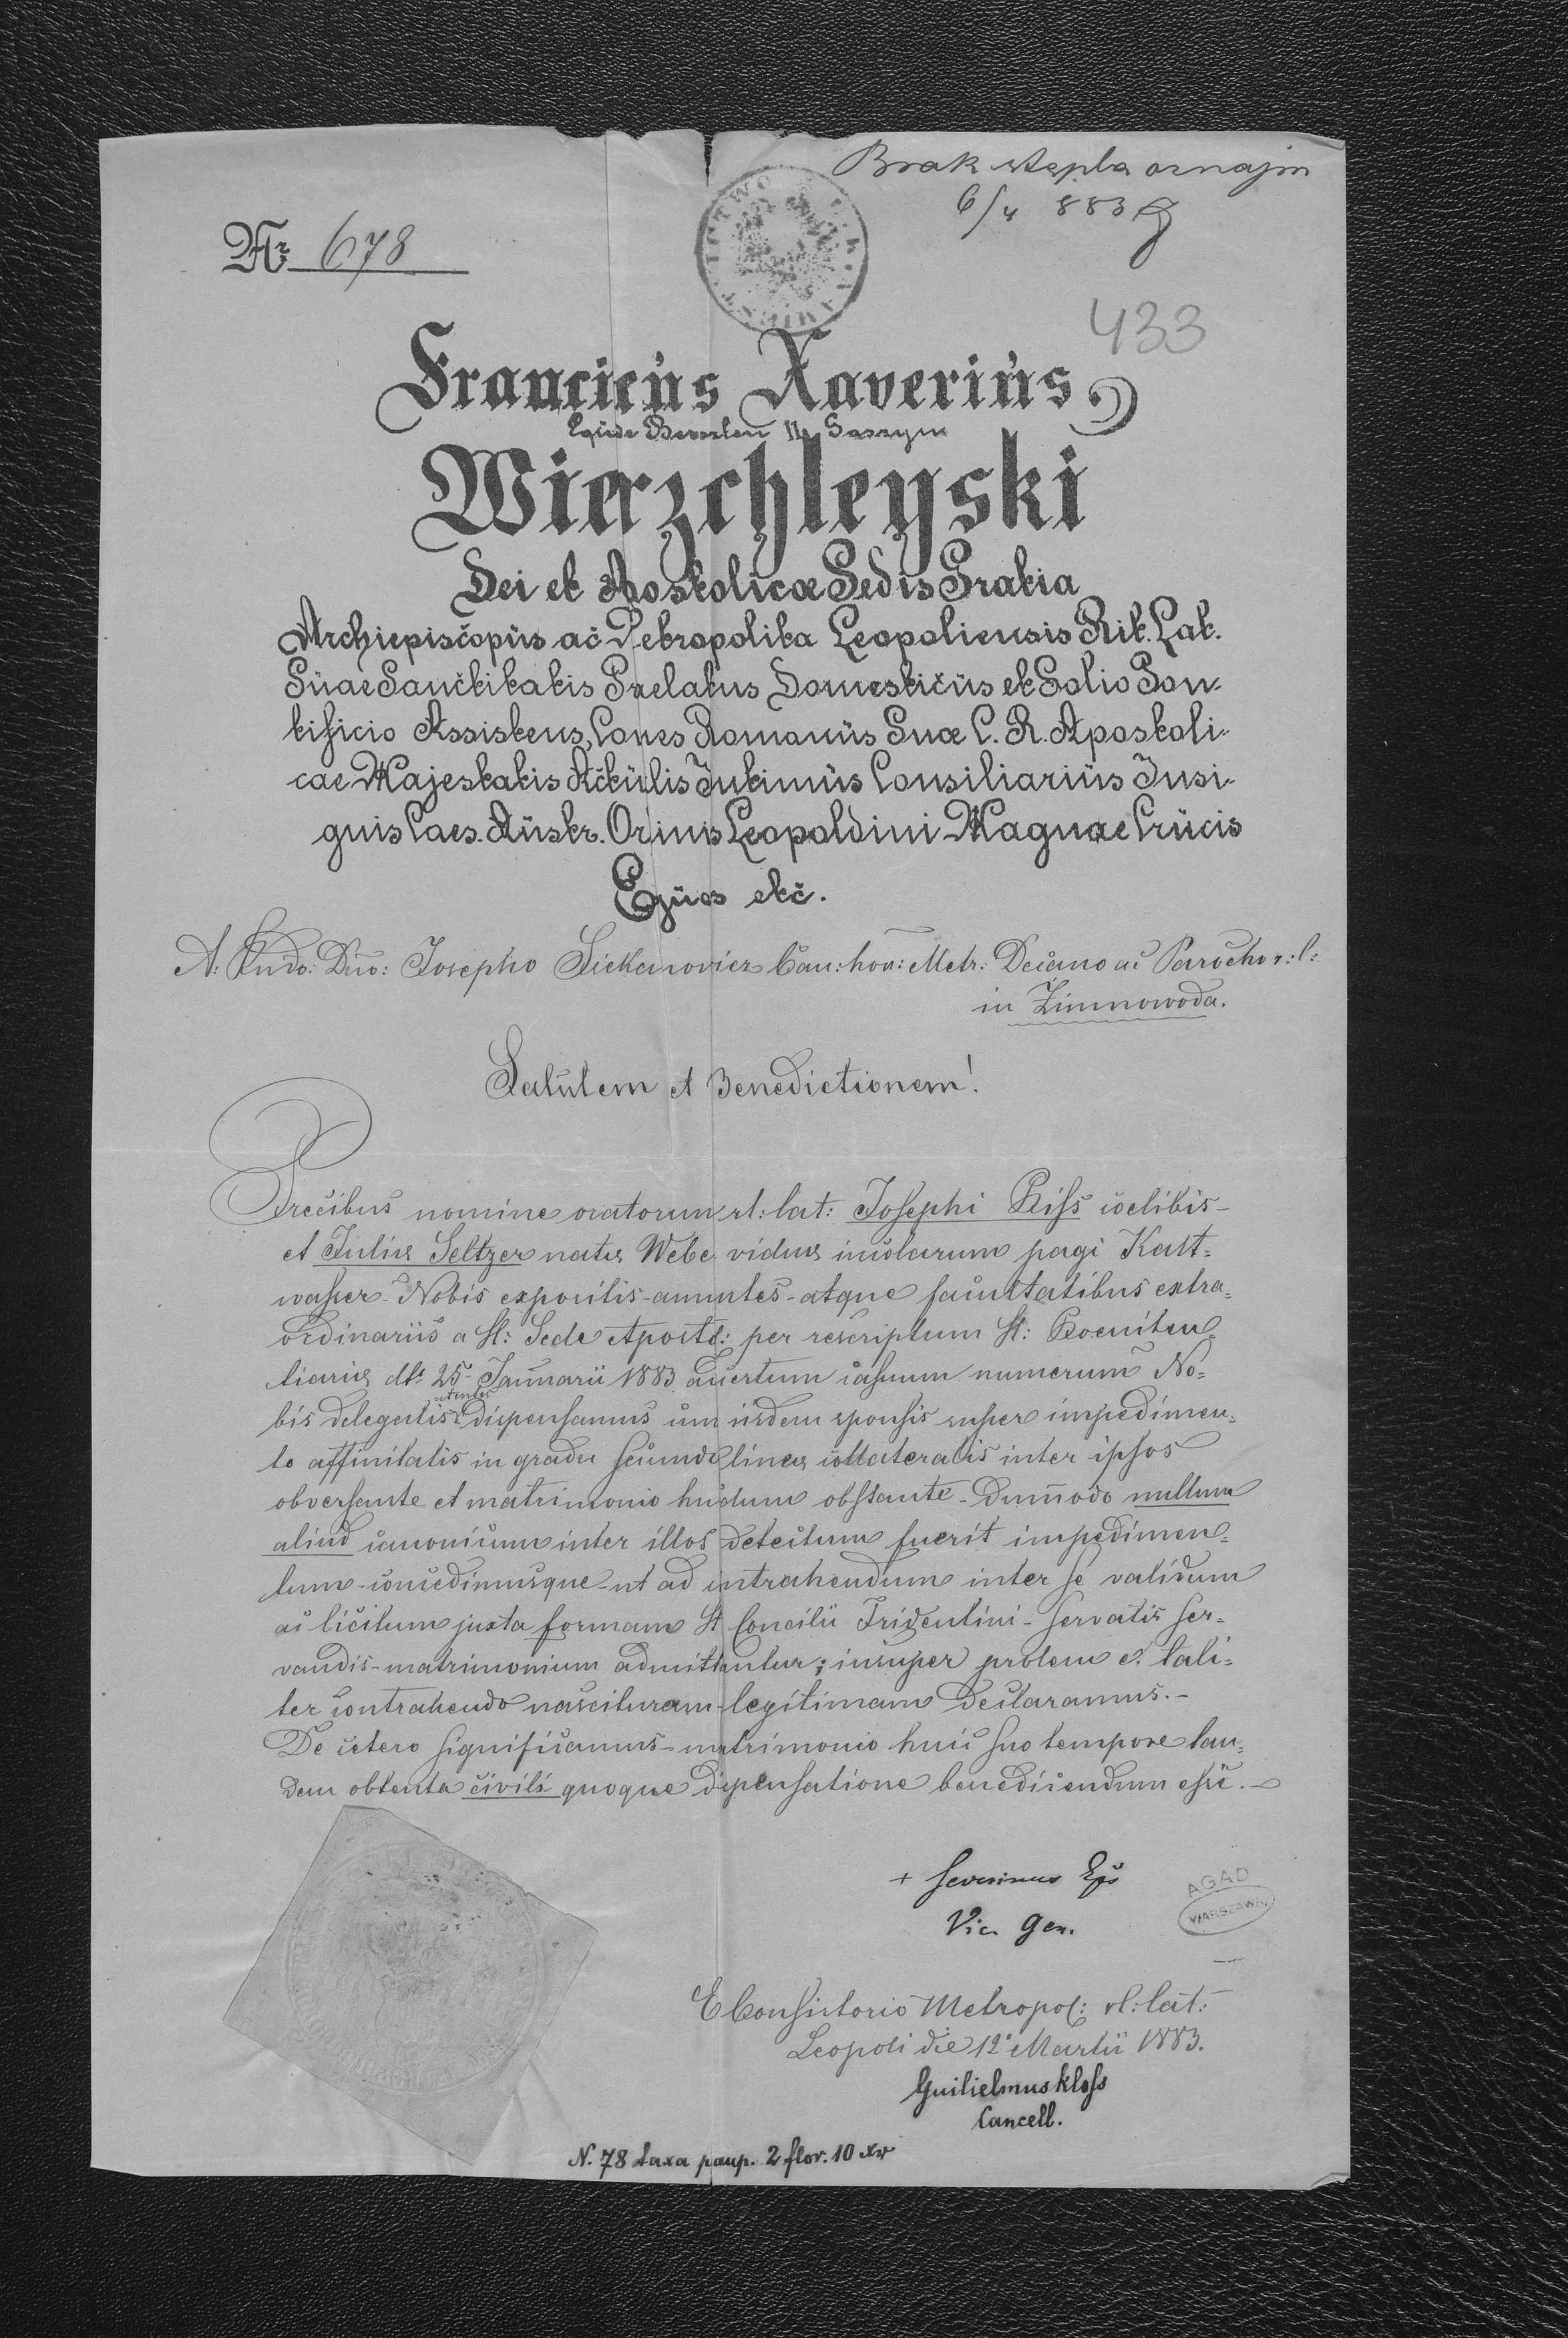 Brak stepla oznajm
6/4 883
Nr 678
433
Franciscus Xaverius
Wierzchleyski
Dei et Apostolicæ Sedis Gratia
Archiepiscopus ac Metropolita Leopoliensis Rit. Lat.
Suae Sanctitatis Praelatus Domesticus et Solio Pon-
tificio Assistens, Comes Romanus Suæ C. R. Apostoli-
cae Majestatis Actualis Intimus Consiliarius Insi-
gnis Caes. Austr. Ordinis Leopoldini Magnae Crucis
Eques etc.
A. Rndo: Dno: Josepho Can: hon: Metr: Decano ac Parocho r: l:
in Zimnowoda.
Salutem et Benedictionem!
Precibus nomine oratorum rt: lat: Josephi Reiss coelibis
et Juliæ Seltzer natæ Webe viduæ incolarum pagi Kalt=
wasser Nobis expositis annuentes atque facultatibus extra=
ordinariis a St: Sede Apostol: per rescriptum St: Poeniten=
tiariæ dto 25 Januarii 1883 ad certum casuum numerum No=
bis delegatis utentes dispensamus cum iisdem sponsis super impedimen=
to affinitatis in gradu secundo lineæ collateralis inter ipsos
obversante et matrimonio hucdum obstante - dummodo nullum
aliud canonicum inter illos detectum fuerit impedimen=
tum - concedimusque - ut ad contrahendum inter se validum
ac licitum juxta formam St Concilii Tridentini - servatis ser=
vandis - matrimonium admittantur; insuper prolem e tali=
ter contrahendo nascituram legitimam declaramus. -
De cetero significamus - matrimonio huic suo tempore tan=
dem obtenta civili quoque dispensatione benedicendum esse. -
+ Severinus Eps
Vic. Gen.
AGAD
WARSZAWA
E Consistorio Metropol: rt: lat:
Leopoli die 12 Martii 1883.
Guilielmus Kloss
Cancell.
N. 78 taxa paup. 2 flor. 10 xr